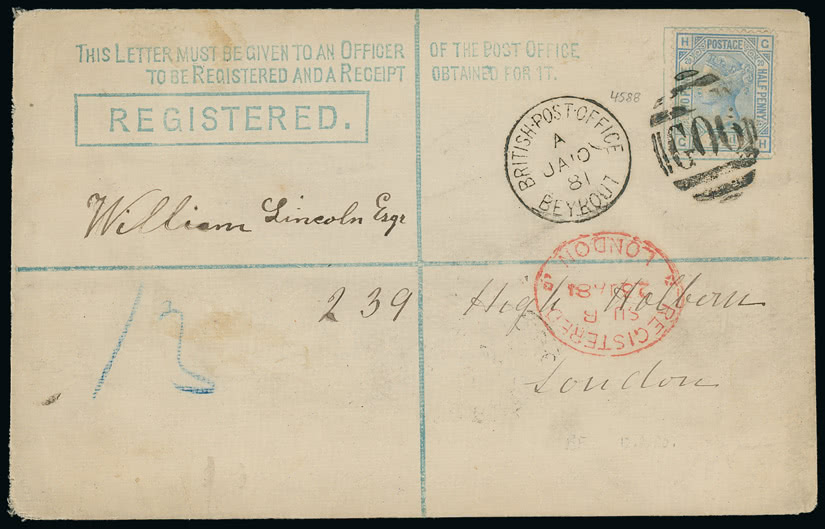 THIS LETTER MUST BE GIVEN TO AN OFFICER OF THE POST OFFICE
TO BE REGISTERED AND A RECEIPT OBTAINED FOR IT.
REGISTERED.
4588
H G
POSTAGE
HALF PENNY
G H
G06
BRITISH·POST·OFFICE
A
JA 10
81
BEYROUT
William Lincoln Esqr
239 High Holborn
London
12
REGISTERED
LONDON
81